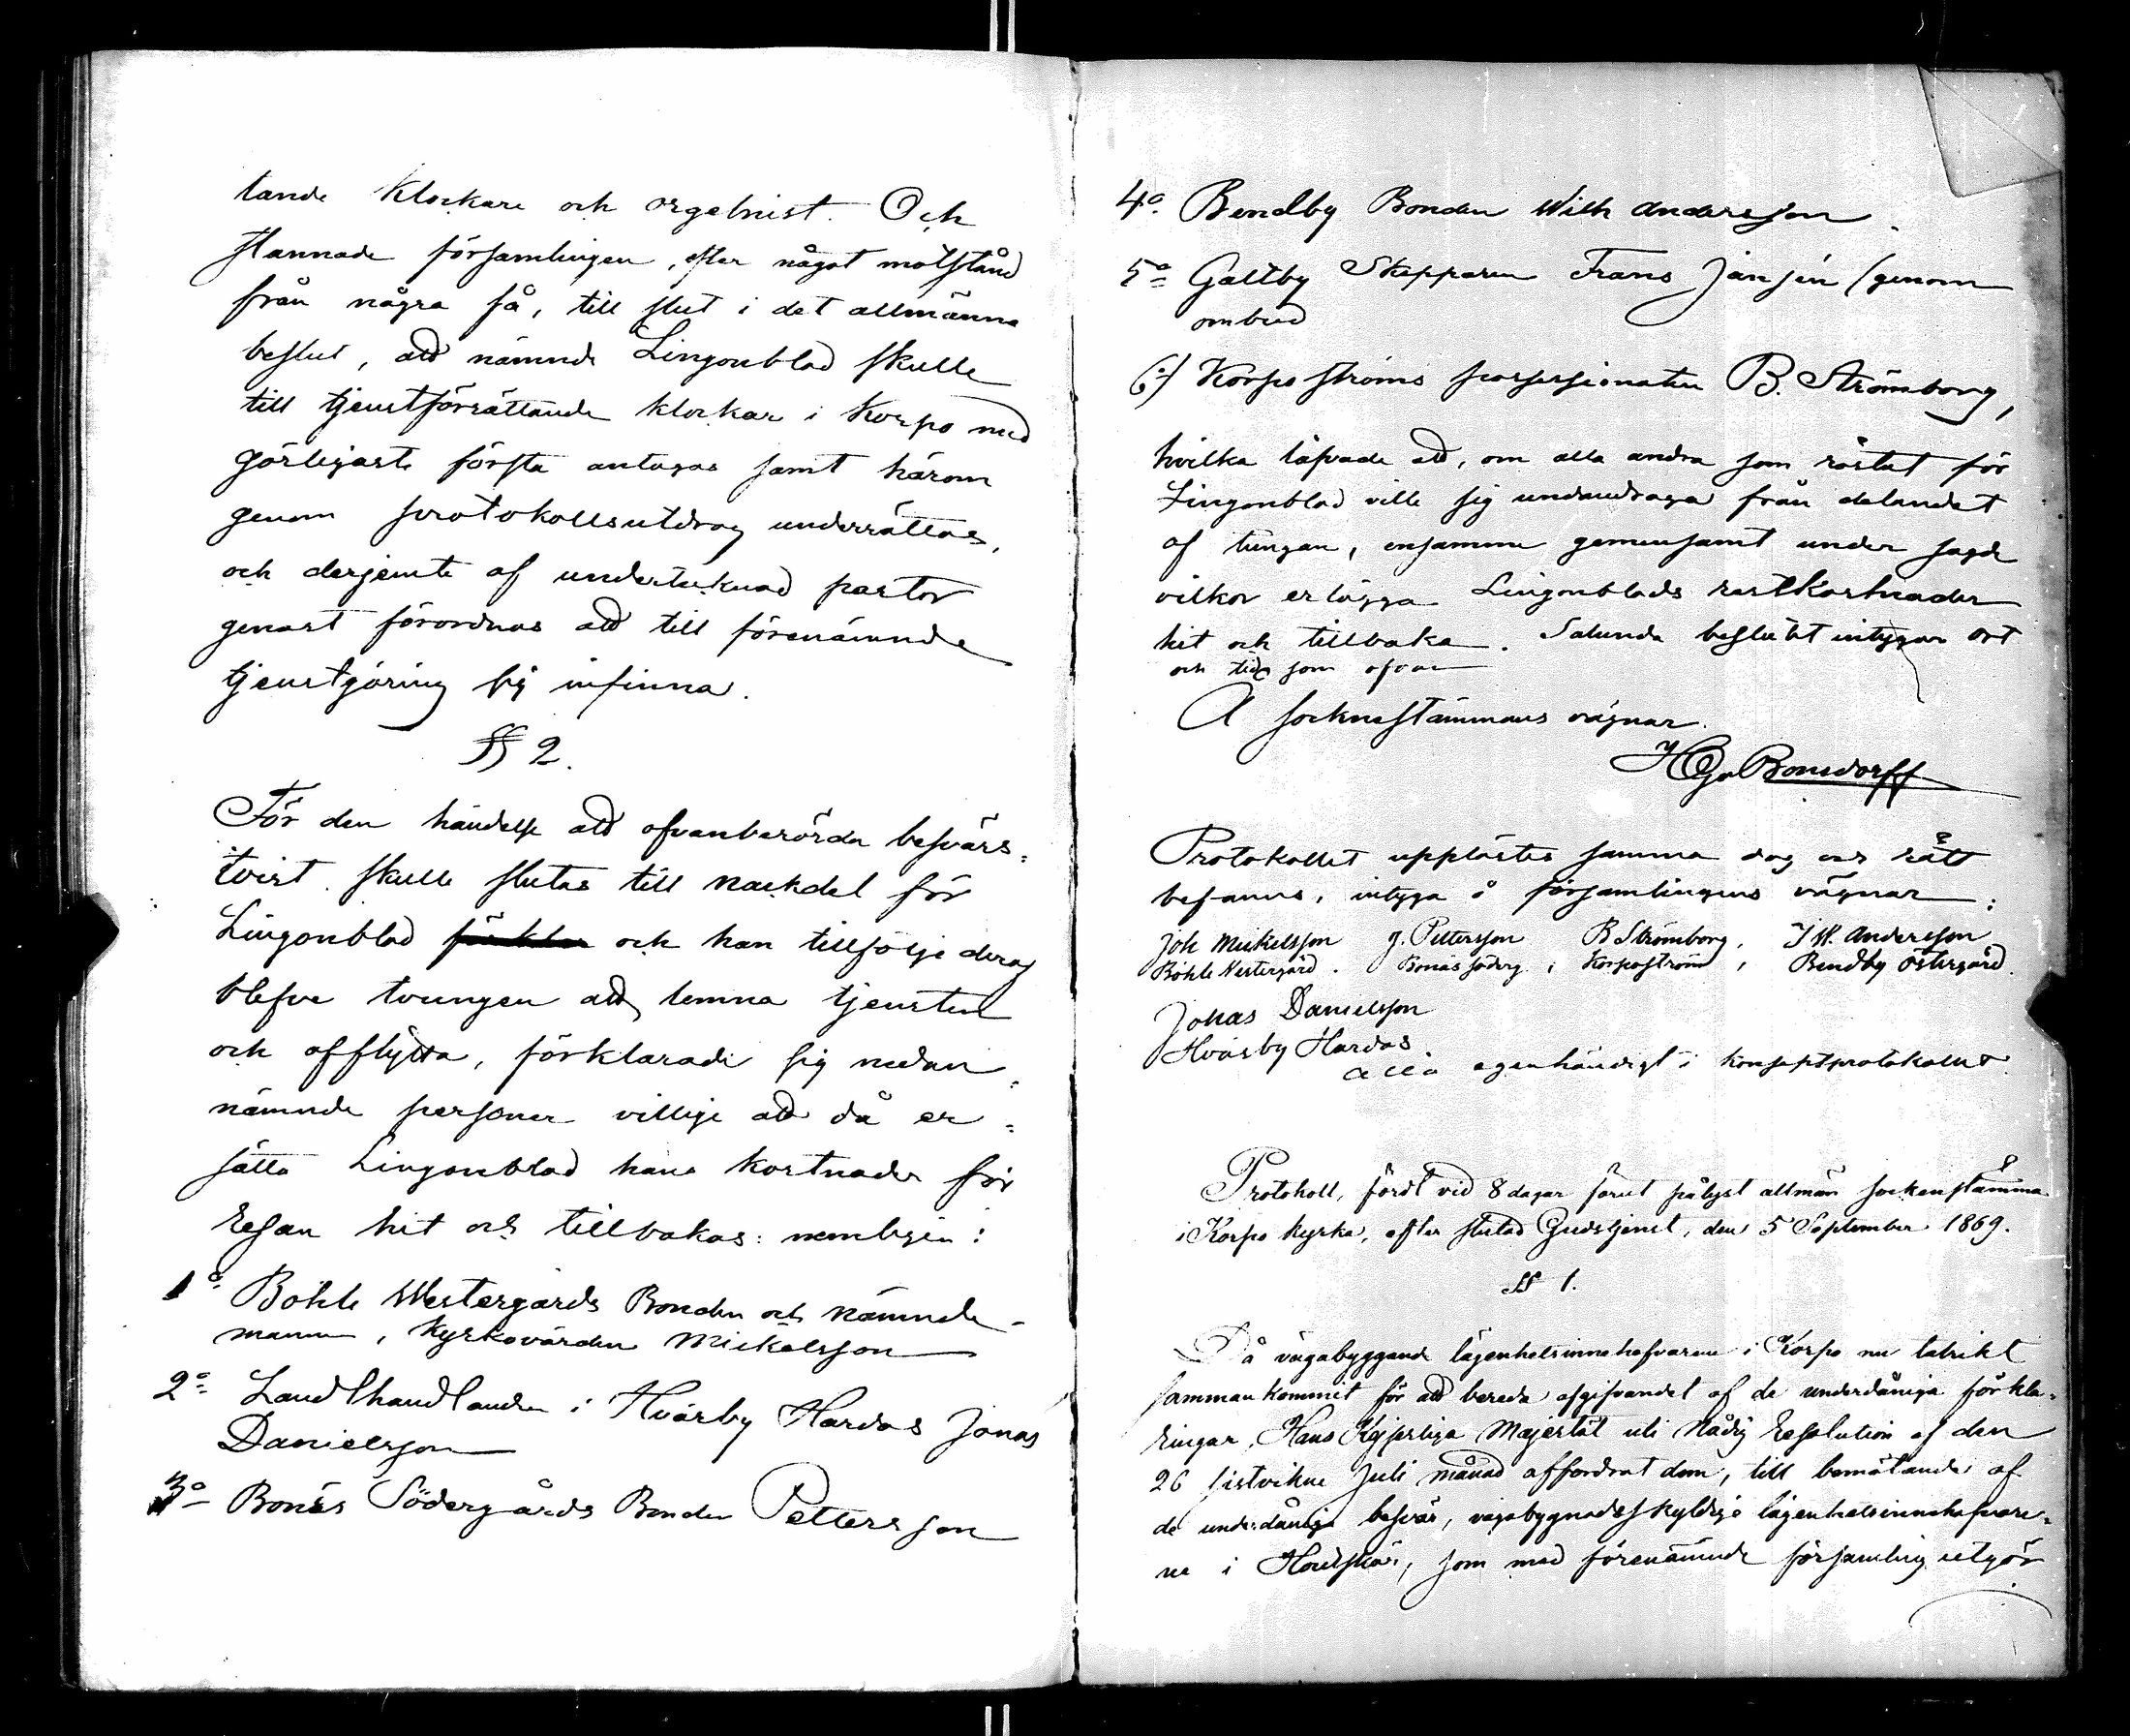 tande Klockare och orgelnist. Och
stannade församlingen, efter något motstånd
från några få, till slut i det allmänna
beslut, att nämnde Lingonblad skulle
till tjenstförrättande klockar i Korpo med
görligaste första antagas samt härom
genom protokollsutdrag underrättas,
och derjemte af undertecknad pastor
genast förordnas att till förenämnde
tjenstgöring sig infinna.
§ 2.
För den händelse att ofvanberörda besvärs=
tvist skulle slutas till nackdel för
Lingonblad och han tillfölje deraf
blefve tvungen att lemna tjensten
och afflytta, förklarade sig nedan=
nämnde personer villige att då er=
sätta Lingonblad hans kostnader för
resan hit och tillbakas: nemligen:
1o Böhle Westergårds Bonden och nämnde-
mannen, Kyrkovärden Mickelsson
2o Landthandlanden i Hväsby Hardas Jonas
Danielsson
3o Bonäs Södergårds Bonden Pettersson
4o Bendby Bonden Wilh Andersson
5o Galtby Skepparen Frans Jansén (genom
ombud
6) Korpo ströms possessionaten B. Strömborg,
hvilka låfvade att, om alla andra som röstat för
Lingonblad ville sig undandraga från delandet
af tungan, ensamme gemensamt under sagde
vilkor erlägga Lingonblads restkostnader
hit och tillbaka. Salunda beslutet intygar ort
och tid som ofvan
Å socknestämmans vägnar.
HGvBonsdorff
Protokollet upplästes samma dag och rätt
befanns, intyga å församlingens vägnar:
Joh Mickelsson J. Pettersson B Strömborg, J W. Andersson
Böhle Westergård. Bonäs söderg. i Korpoström, Bendby Östergård.
Jonas Danielsson
Hväsby Hardas
alla egenhändigt i konseptprotokollet.
Protokoll, fördt vid 8 dagar förut pålyst allmän sockenstämma
i Korpo kyrka, efter slutad Gudstjenst, den 5 September 1869.
§ 1.
Då vägabyggande lägenhetsinnehafvarene i Korpo nu talrikt
sammankommit för att bereda afgifvandet af de underdåniga förkla=
ringar, Hans Kejserliga Majestät uti Nådig Resolution af den
26 sistvikne Juli månad affordrat dem, till bemötande af
de underdåniga besvär, vägabyggnadsskyldige lägenhetsinnehafvare=
ne i Houtskär, som med förenämnde församling utgör